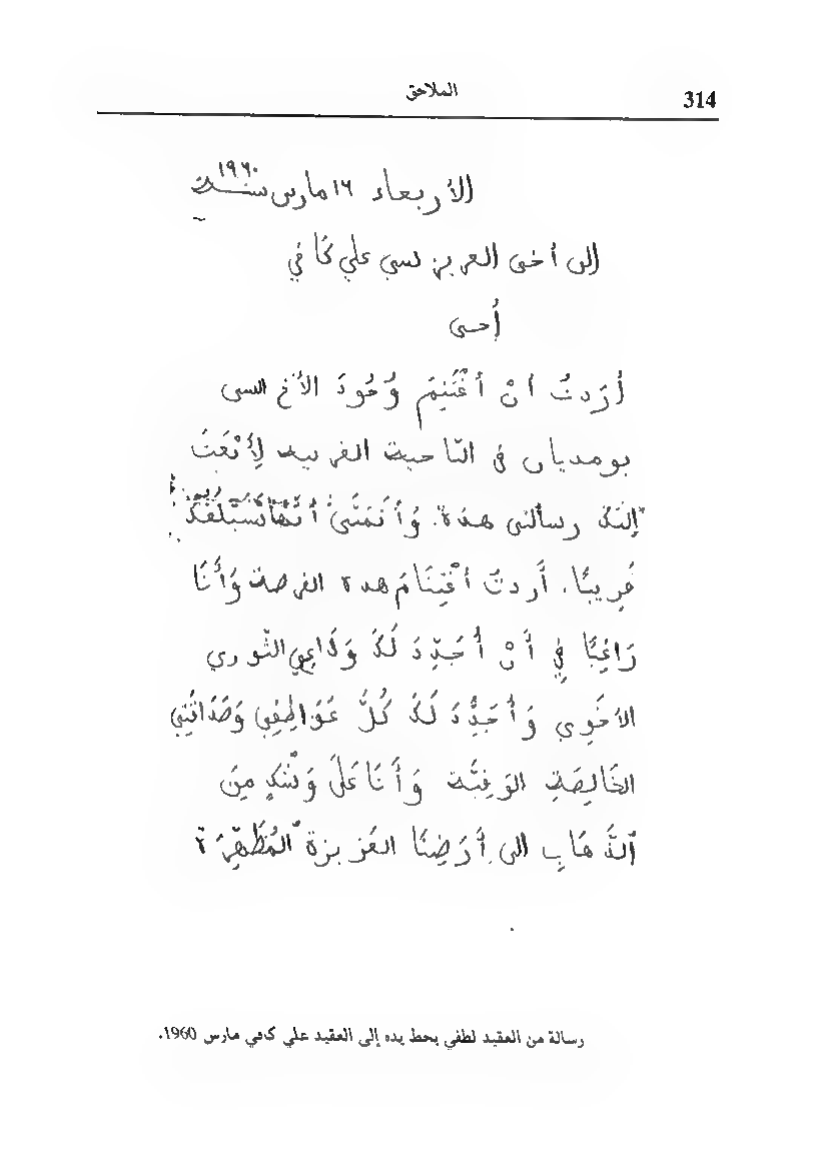 الملاحق
314
الأربعاء ١٦ مارس سنة ١٩٦٠
إلى أخي العزيز سي علي كافي
أخي
أَرَدتُ أنْ أغْتَنِمَ وُجُودَ الأخ السي
بومدیان في النّاحية الغربية لِأبْعَثَ
إليكَ رسالتي هذه. وَأَتَمَنَّى أنّهَا سَتَبْلُغُكَ
قَرِيبًا. أَردتُ اغْتِنَامَ هذه الفرصة وَأَنَا
رَاغِبًا فِي أَنْ أُجَدِّدَ لَكَ وَلَاءِي الثّوري
الأخَوِي وَأُجَدِّدَ لَكَ كُلَّ عَوَاطِفِي وَصَدَاقَتِي
الخَالِصَةِ الوَفِيَّة وَأَنَا عَلَى وَشْكٍ مِنَ
الذَّهَابِ الى أَرَضِنَا العَزيزة المُطَهَّرَة
رسالة من العقيد لطفي بخط يده إلى العقيد علي كافي مارس 1960.